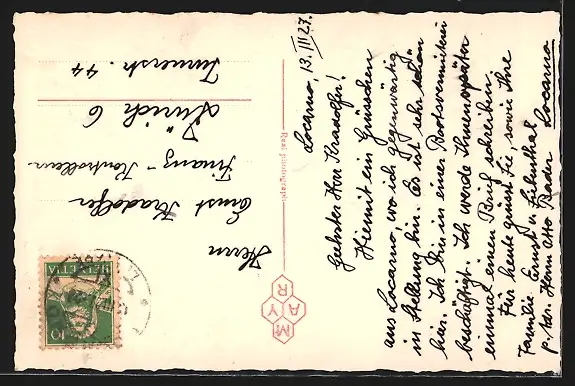 Locarno, 13. III 27.
Geehrter Herr Kradolfer!
Hiermit ein Grüsschen
aus Locarno, wo ich gegenwärtig
in Stellung bin. Es ist sehr schön
hier. Ich bin in einer Bootsvermieterei
beschäftigt. Ich werde Ihnen später
einmal einen Brief schreiben.
Für heute grüsst Sie, sowie Ihre
Familie Ernst Lilienthal
p. Adr. Herrn Otto Bader Locarno
Real photograph
MAYR
Herrn
Ernst Kradolfer
Finanz-Kontrolleur
Zürich 6
Turnerstr. 44
HELVETIA
10